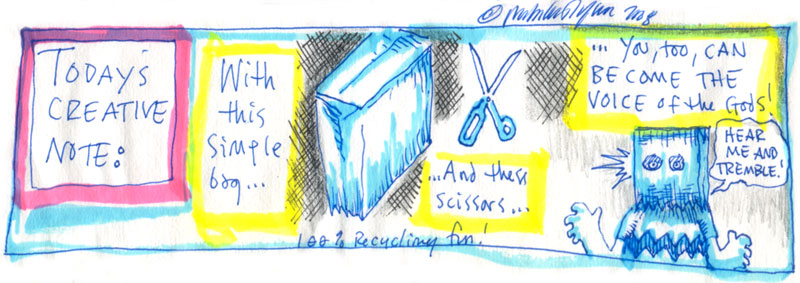 © 2008
TODAY'S
CREATIVE
NOTE:
With
this
simple
bag...
...And these
scissors...
... YOU, TOO, CAN
BECOME THE
VOICE of the Gods!
HEAR
ME AND
TREMBLE!
100% Recycling fun!